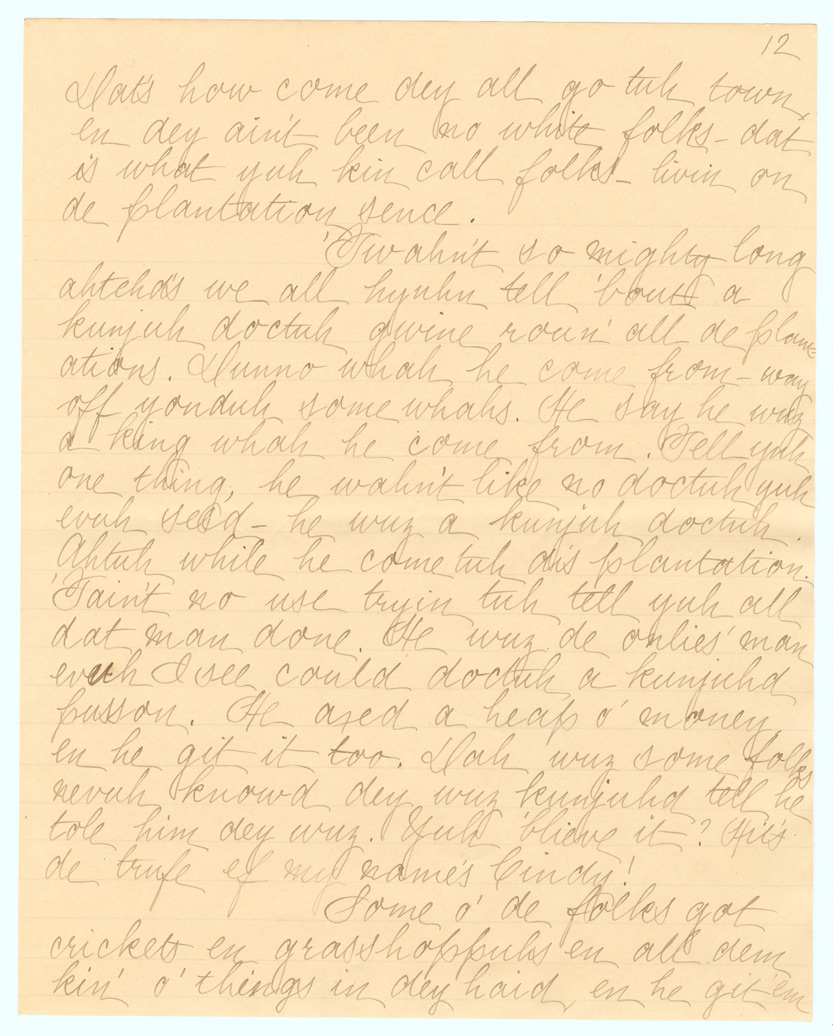 12
Dat's how come dey all go tuh town,
en dey ain't been no white folks - dat
is what yuh kin call folks - livin on
de plantation sence.
'Twahn't so mighty long
ahtehd's we all hyuhn tell 'bout a
kunjuh doctuh gwine roun' all de plant-
ations. Dunno whah he come from - way
off yonduh some whahs. He say he wuz
a king whah he come from. Tell yuh
one thing, he wahn't like no doctuh yuh
evuh seed - he wuz a kunjuh doctuh.
Ahtuh while he come tuh dis plantation.
'Tain't no use tryin tuh tell yuh all
dat man done. He wuz de onlies' man
evuh I see could doctuh a kunjuhd
pusson. He axed a heap o' money
en he git it too. Dah wuz some folks
nevuh knowd dey wuz kunjuhd tell he
tole him dey wuz. Yuh 'blieve it? Hit's
de trufe ef my name's Cindy!
Some o' de folks got
crickets en grasshoppuhs en all dem
kin' o' things in dey haid, en he git 'em